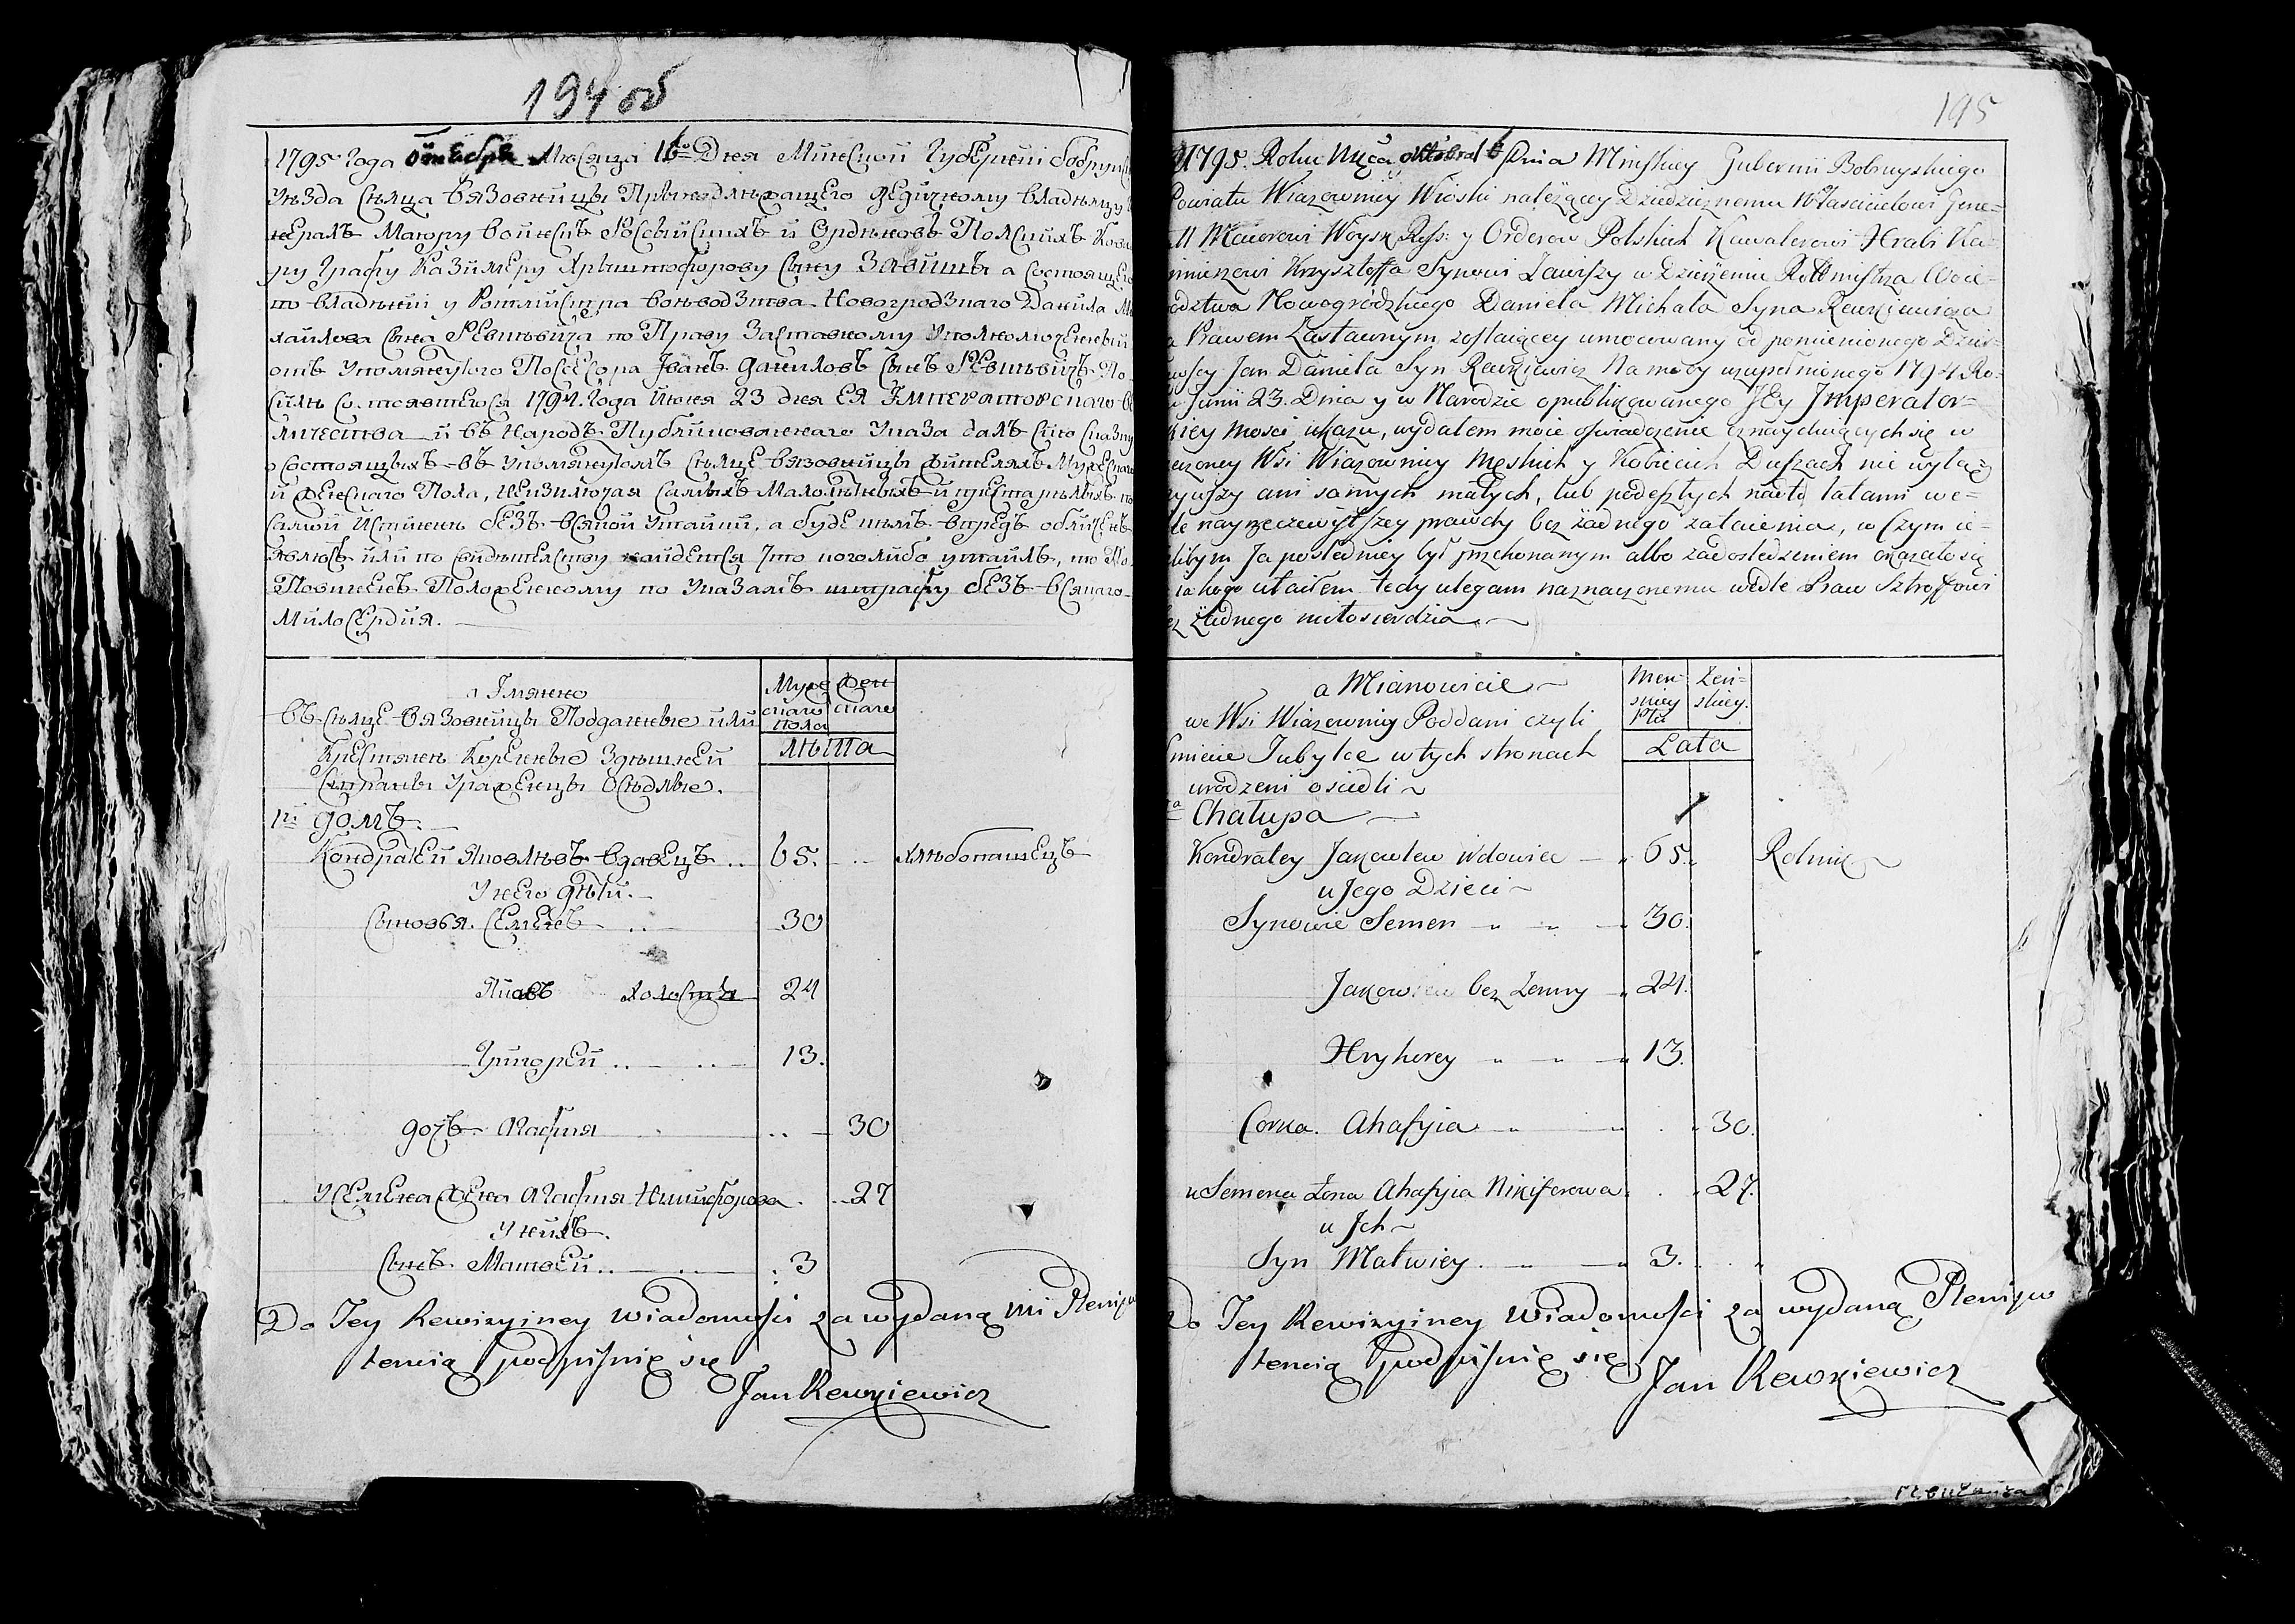 194 об
1795 Года октября Месяца 16го Дня Минской Губернiи Бобруйск
Уѣзда Сѣлца Вязовницы Принадлѣжащего Дедичному владѣлцу
нералъ Маiору войскъ Россыйскихъ и Ордѣновъ Полскихъ Кова
ру Графу Казимеру Крыштофорову сыну Завишы а Состоящего
во владѣнiи у Ротмистра воѣводзтва Новогродзкаго Данiила Ми
хайлова сына Ревкѣвича по Праву Заставному Уполномоченный
отъ Упомянутого Поссесора Iванъ Даниловъ Сынъ Ревкѣвичъ По-
силѣ состоявшегося 1794. Года Июня 23 дня ЕЯ Императорскаго Ве
личества и въ Народъ Публикованнаго Указа далъ Сию Сказку
о состоящыхъ въ Упомянутомъ Сѣлце Вязовницы жителяхъ Мужескаго
и женскаго Пола, неизключая самыхъ Малолѣтныхъ и престарѣлыхъ по
самой Истиннѣ безъ всякой Утайки, а буде кѣмъ впредъ обличенъ
явлюсь или по свидѣтелству найдется что коголибо утаилъ, то По-
Повиненъ Положенному по Указамъ штрафу безъ всякаго
Милосердия.
а Iмянно
Муже скаго пола
Жен скаго
въ Сѣлце Вязовницы Подданные или
Крестянѣ Коренные Здѣшней
лѣта
Страны Уроженцы Осѣдлые.
1й домъ.
Кондратей Яковлѣвъ вдовецъ .. 65. .. хлѣбопашецъ
У него дѣти.
Сыновья. Семенъ .. 30
Яковъ холостъ 24
Григорей .. .. 13.
дочъ Агафия .. 30
У Семена Жена Агафия Никифорова . . 27
У нихъ.
Сынъ Матвей .. .. 3
Do Tey Rewizyiney Wiadomości za wydaną mi Plenipo
tencią podpisuię się
Jan Rewkiewicz
195
1795. Roku Mca oktobra 16 Dnia Minskiey Gubernii Bobruyskiego
Powiatu Wiazownicy Wioski należącey Dziedzicznemu Włascicielowi Gene=
M Maiorowi Woysk Ross: y Orderow Polskich Kawalerowi Hrabi Ka
zimierzowi Krzysztoffa Synowi Zawiszy w Dzierżeniu Rottmistrza Woie=
odztwa Nowogródzkiego Daniela Michała Syna Rewkiewicza
a Prawem Zastawnym zostaiącey umocowany od pomienionego Dzier=
Jan Daniela Syn Rewkiewicz Na mocy uzupełnionego 1794. Ro=
Junii 23. Dnia y w Narodzie opublikowanego JEy Imperator=
skiey Mosci ukazu, wydałem moie oswiadczenie o znayduiących się w
rzeczoney Wsi Wiazownicy Męskich y Kobiecich Duszach nie wyłą=
aiąwszy ani samych małych, lub podeszłych nadto latami we=
dle nayrzeczewistszey prawdy bez żadnego zataienia, w czym ie=
libym Ja posledniey był przekonanym albo za dosledzeniem okazało się
iakogo utaiłem tedy ulegam naznaczonemu wedle Praw Sztraffowi
ez żadnego miłosierdzia.
a Mianowicie
Men= skiey Płci
Żen= skiey.
we Wsi Wiazownicy Poddani czyli
Kmiecie Tubylce w tych stronach
Lata
urodzeni osiedli
1a Chałupa
Kondratey Jakowlew Wdowiec 65. Rolnik
u Jego Dzieci
Synowie Semen 30.
Jakow bez Żenny 24.
Hryhorey 13.
Corka. Ahafyia 30.
u Semena Żona Ahafyia Nikiforowa 27.
u Jch
Syn Matwiey. 3.
Do Tey Rewizyiney Wiadomości za wydaną Plenipo
tencią podpisuię się
Jan Rewkiewicz